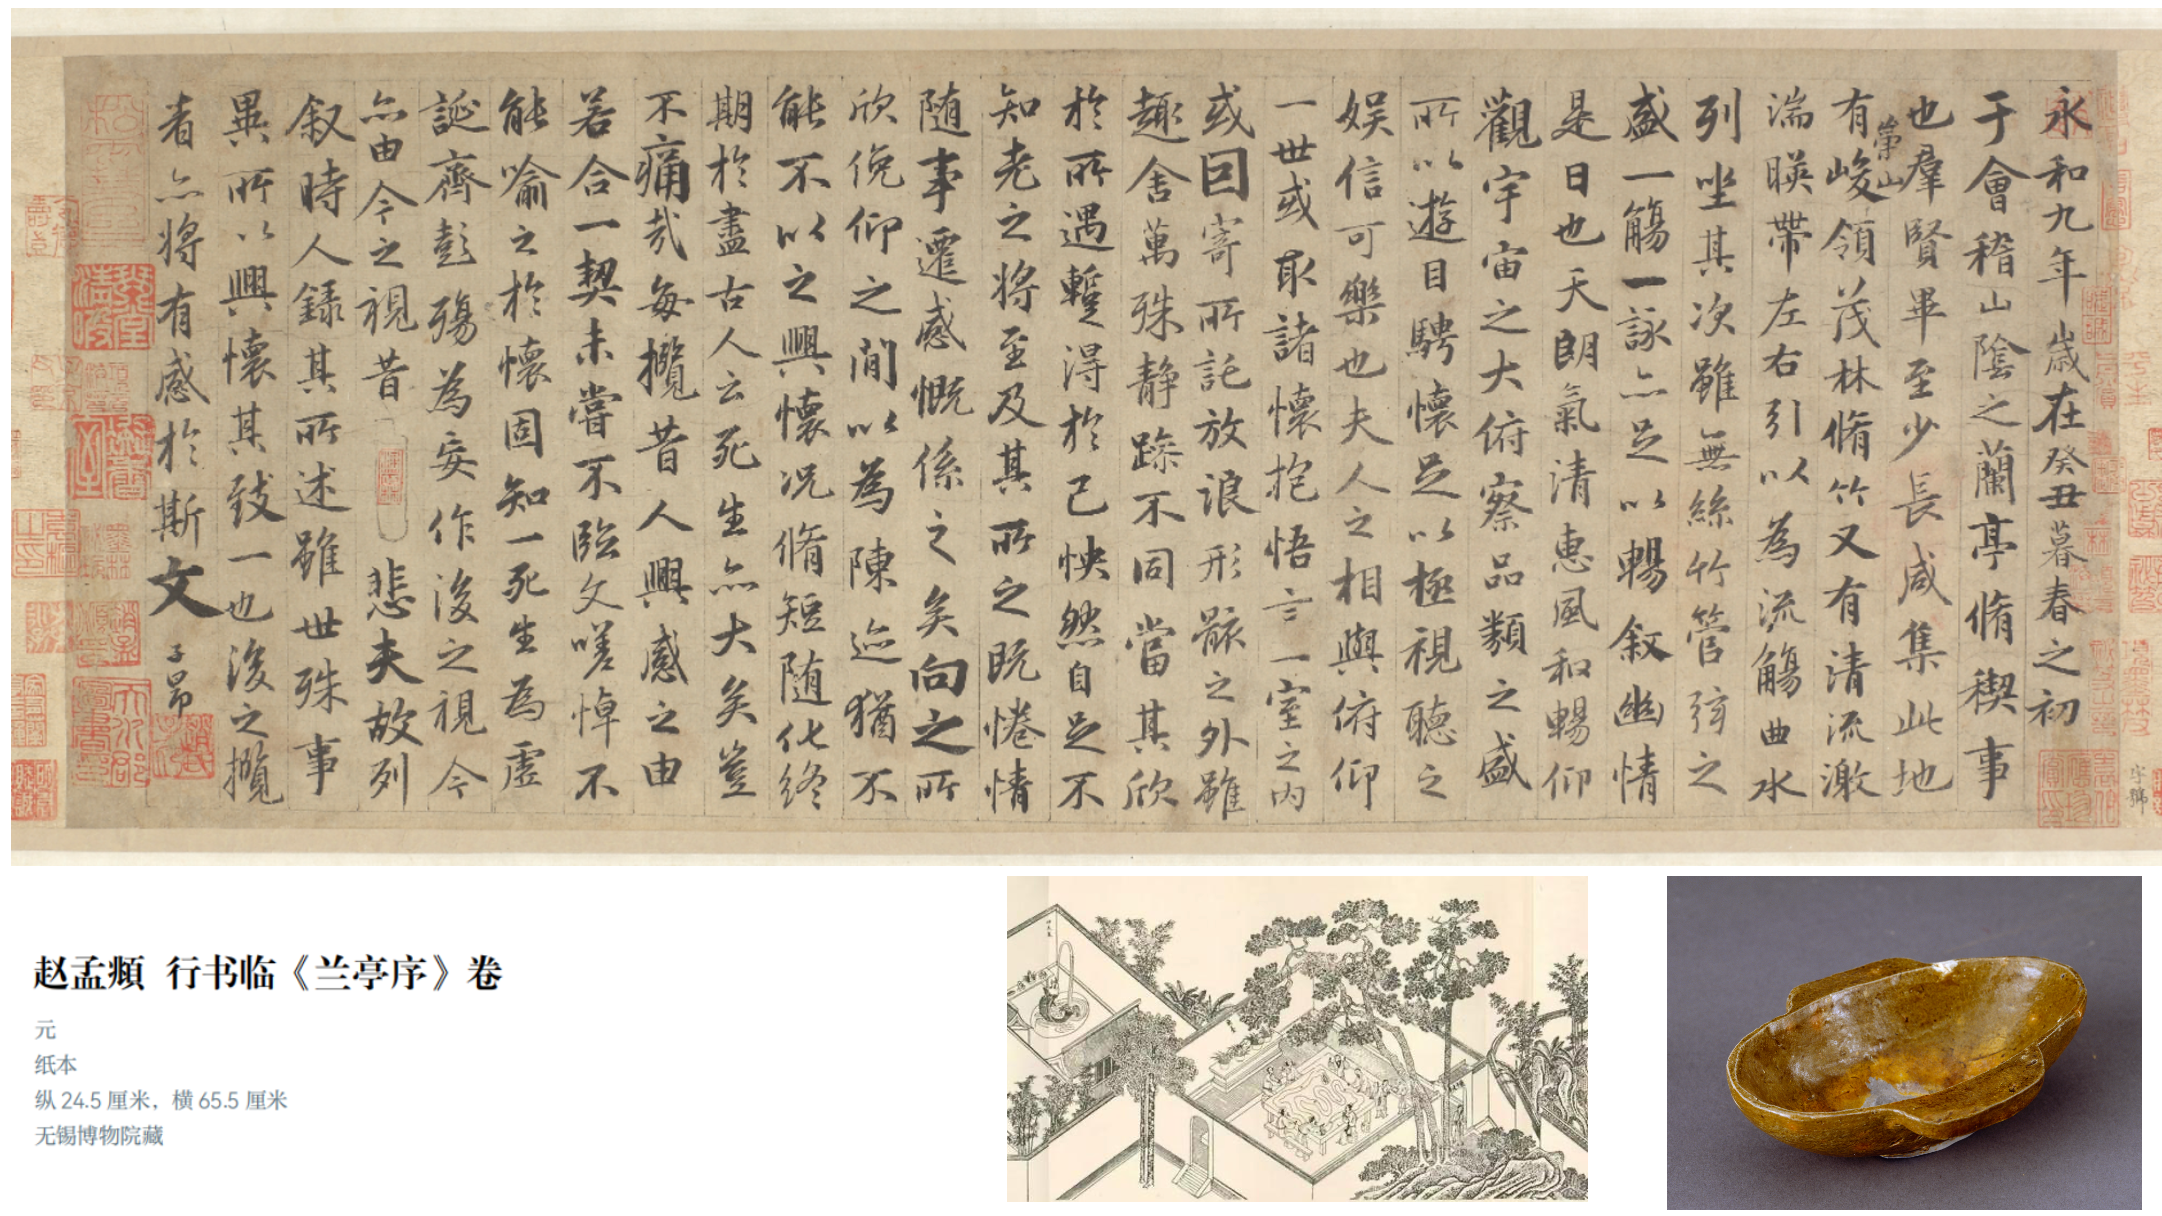 永和九年歲在癸丑暮春之初
于會稽山陰之蘭亭脩稧事
也羣賢畢至少長咸集此地
崇山
有峻領茂林脩竹又有清流激
湍暎帶左右引以為流觴曲水
列坐其次雖無絲竹管弦之
盛一觴一詠亦足以暢叙幽情
是日也天朗氣清惠風和暢仰
觀宇宙之大俯察品類之盛
所以遊目騁懷足以極視聽之
娛信可樂也夫人之相與俯仰
一世或取諸懷抱悟言一室之內
或因寄所託放浪形骸之外雖
趣舍萬殊静躁不同當其欣
於所遇蹔得於己怏然自足不
知老之將至及其所之既惓情
随事遷感慨係之矣向之所
欣俛仰之間以為陳迹猶不
能不以之興懷況脩短随化終
期於盡古人云死生亦大矣豈
不痛哉每攬昔人興感之由
若合一契未嘗不臨文嗟悼不
能喻之於懷固知一死生為虛
誕齊彭殤為妄作後之視今
亦由今之視昔 悲夫故列
叙時人錄其所述雖世殊事
異所以興懷其致一也後之攬
者亦將有感於斯文 子昂
赵孟頫 行书临《兰亭序》卷
元
纸本
纵 24.5 厘米，横 65.5 厘米
无锡博物院藏